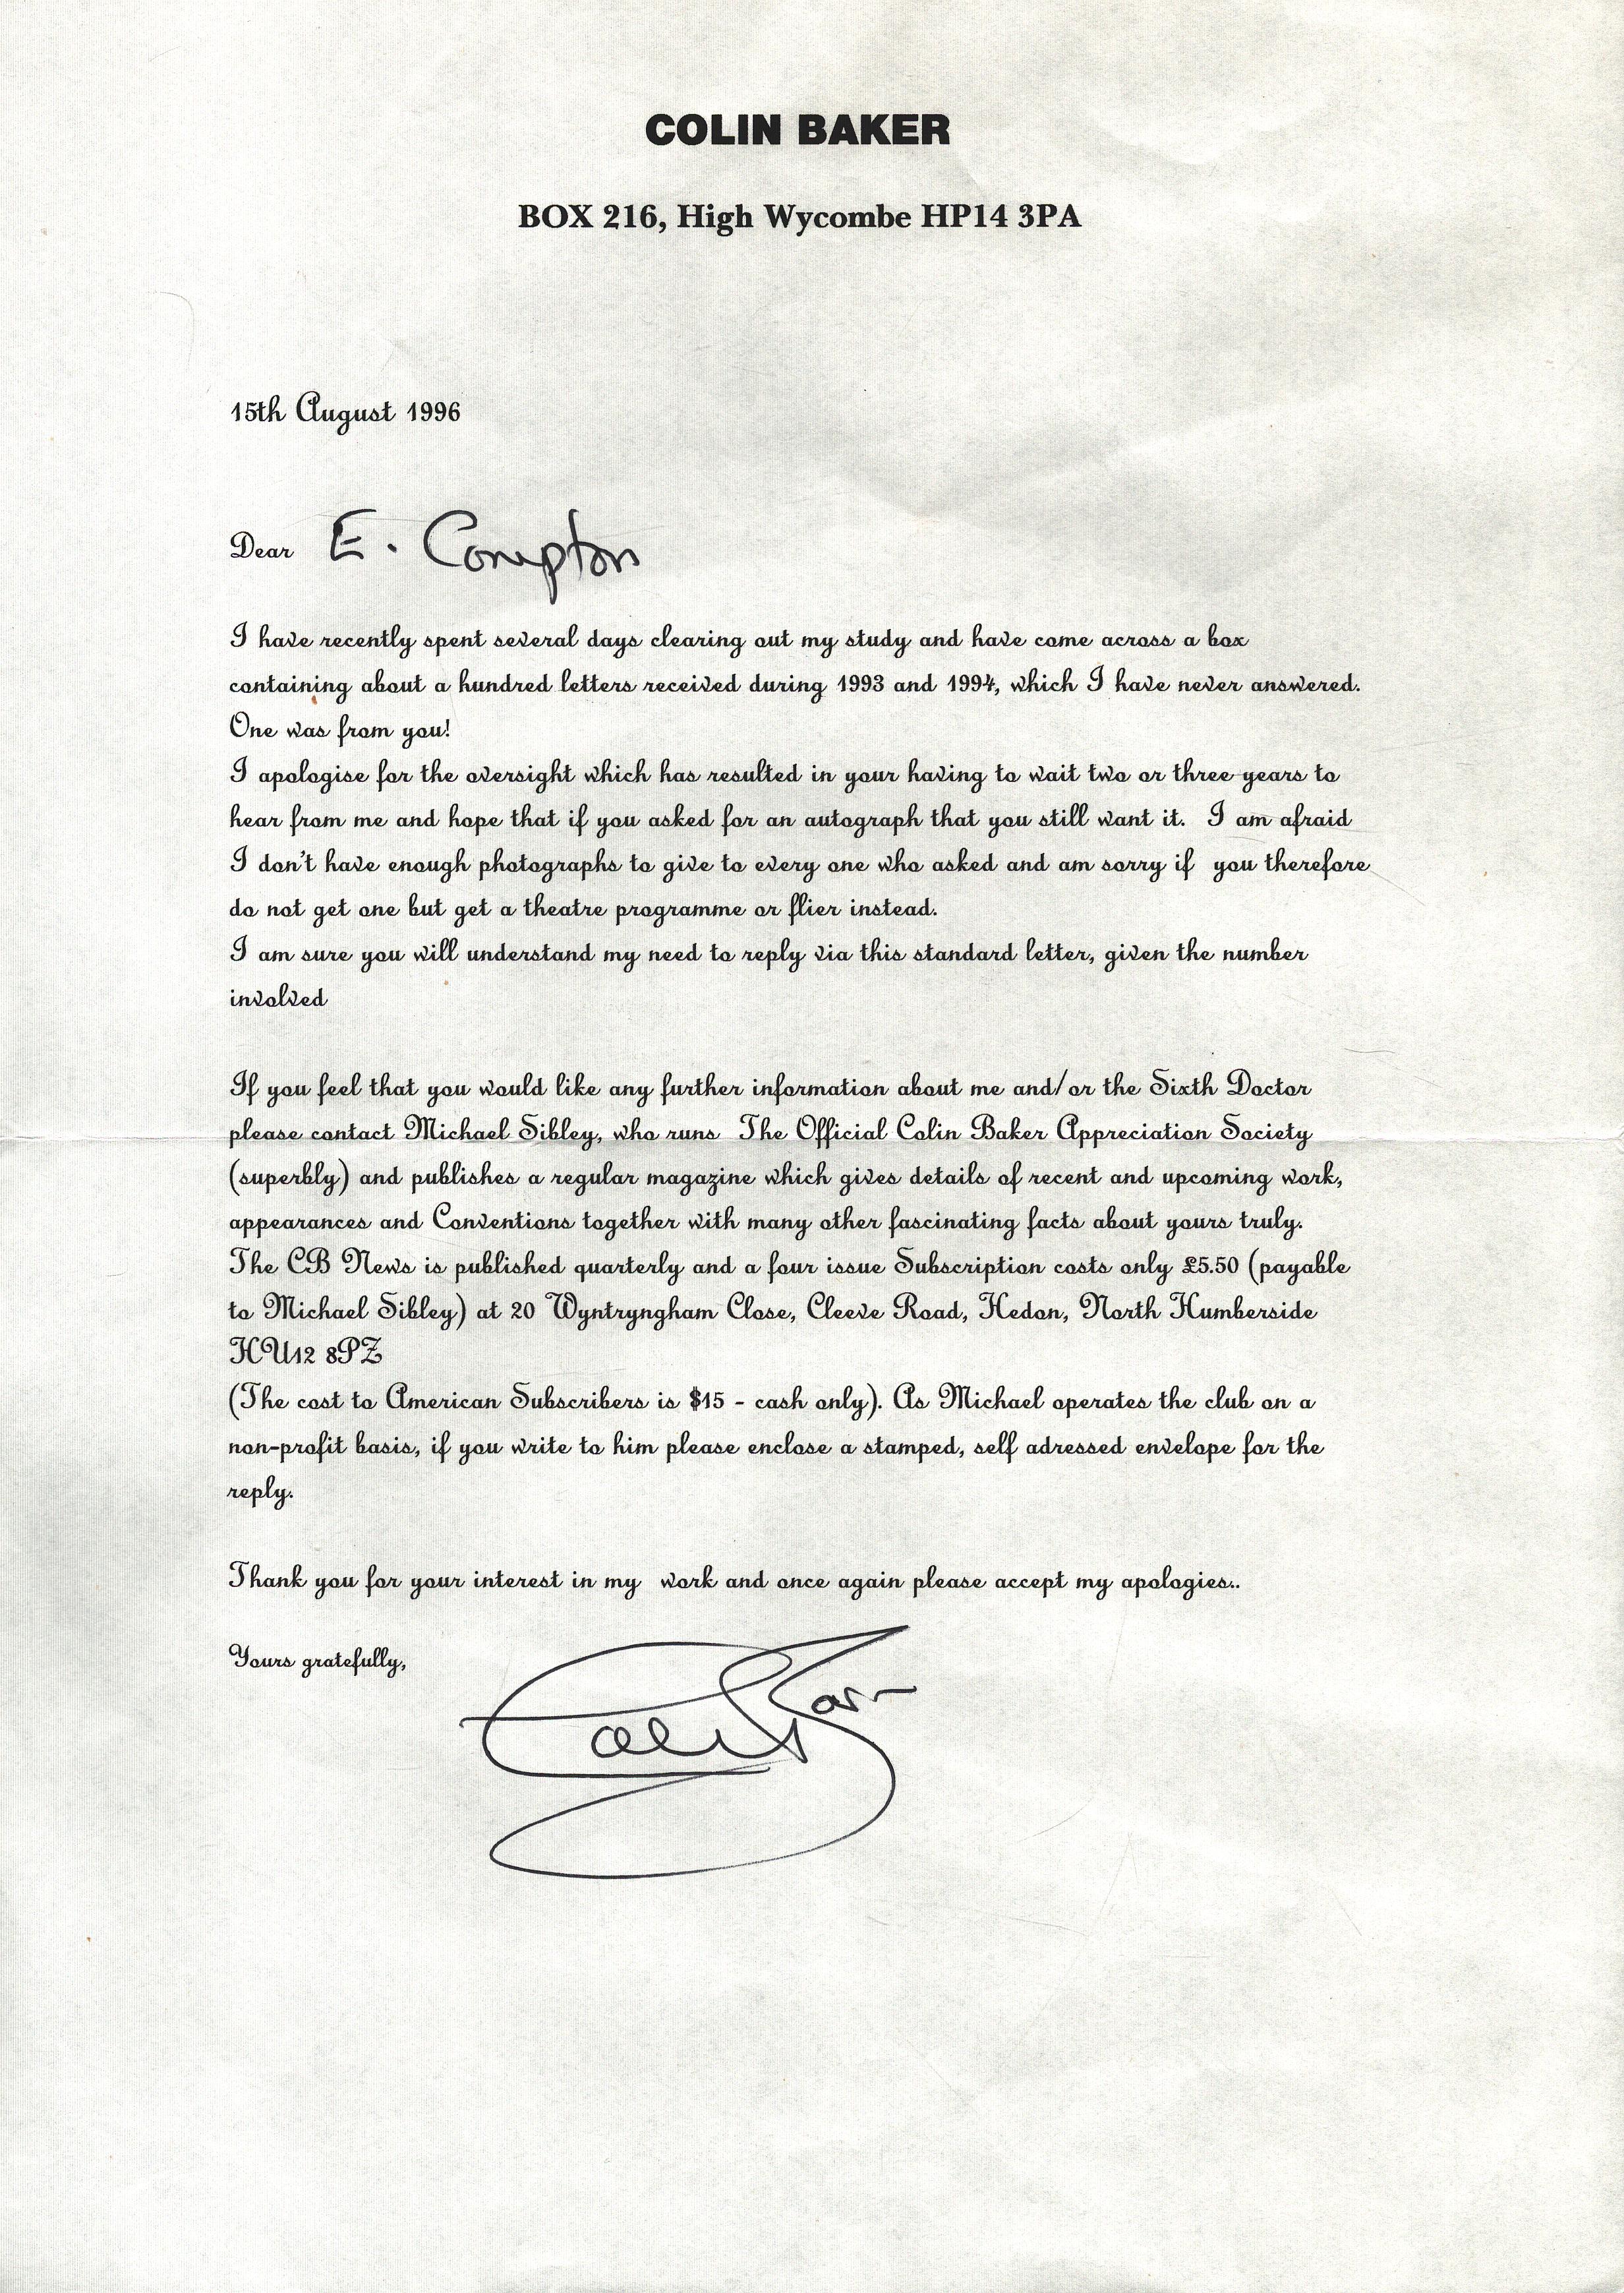 COLIN BAKER
BOX 216, High Wycombe HP14 3PA
15th August 1996
Dear E. Compton
I have recently spent several days clearing out my study and have come across a box
containing about a hundred letters received during 1993 and 1994, which I have never answered.
One was from you!
I apologise for the oversight which has resulted in your having to wait two or three years to
hear from me and hope that if you asked for an autograph that you still want it.  I am afraid
I don't have enough photographs to give to every one who asked and am sorry if  you therefore
do not get one but get a theatre programme or flier instead.
I am sure you will understand my need to reply via this standard letter, given the number
involved
If you feel that you would like any further information about me and/or the Sixth Doctor
please contact Michael Sibley, who runs  The Official Colin Baker Appreciation Society
(superbly) and publishes a regular magazine which gives details of recent and upcoming work,
appearances and Conventions together with many other fascinating facts about yours truly.
The CB News is published quarterly and a four issue Subscription costs only £5.50 (payable
to Michael Sibley) at 20 Wyntryngham Close, Cleeve Road, Hedon, North Humberside
HU12 8PZ
(The cost to American Subscribers is $15 - cash only). As Michael operates the club on a
non-profit basis, if you write to him please enclose a stamped, self adressed envelope for the
reply.
Thank you for your interest in my  work and once again please accept my apologies..
Yours gratefully,